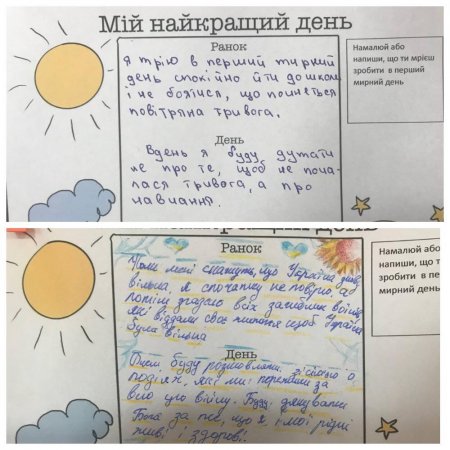 Мій найкращий день
Ранок
я мрію в перший мирний
день спокійно йти до школи
і не боятися, що почнеться
повітряна тривога.
День
Вдень я буду думати
не про те, щоб не поча-
лася тривога, а про
навчання.
Намалюй або
напиши, що ти мрієш
зробити в перший
мирний день
найкращий день
Ранок
Коли мені скажуть, що Україна
вільна, я спочатку не повірю, а
потім згадаю всіх загиблих воїнів,
які віддали своє життя щоб Україна
була вільна
День
Днем буду розмовляти з сім'єю о
подіях, які ми пережили за
всю цю війну. Буду дякувати
Бога за те, що я і мої рідні
живі і здорові.
Намалюй або
напиши, що т
зробити в пе
мирний день